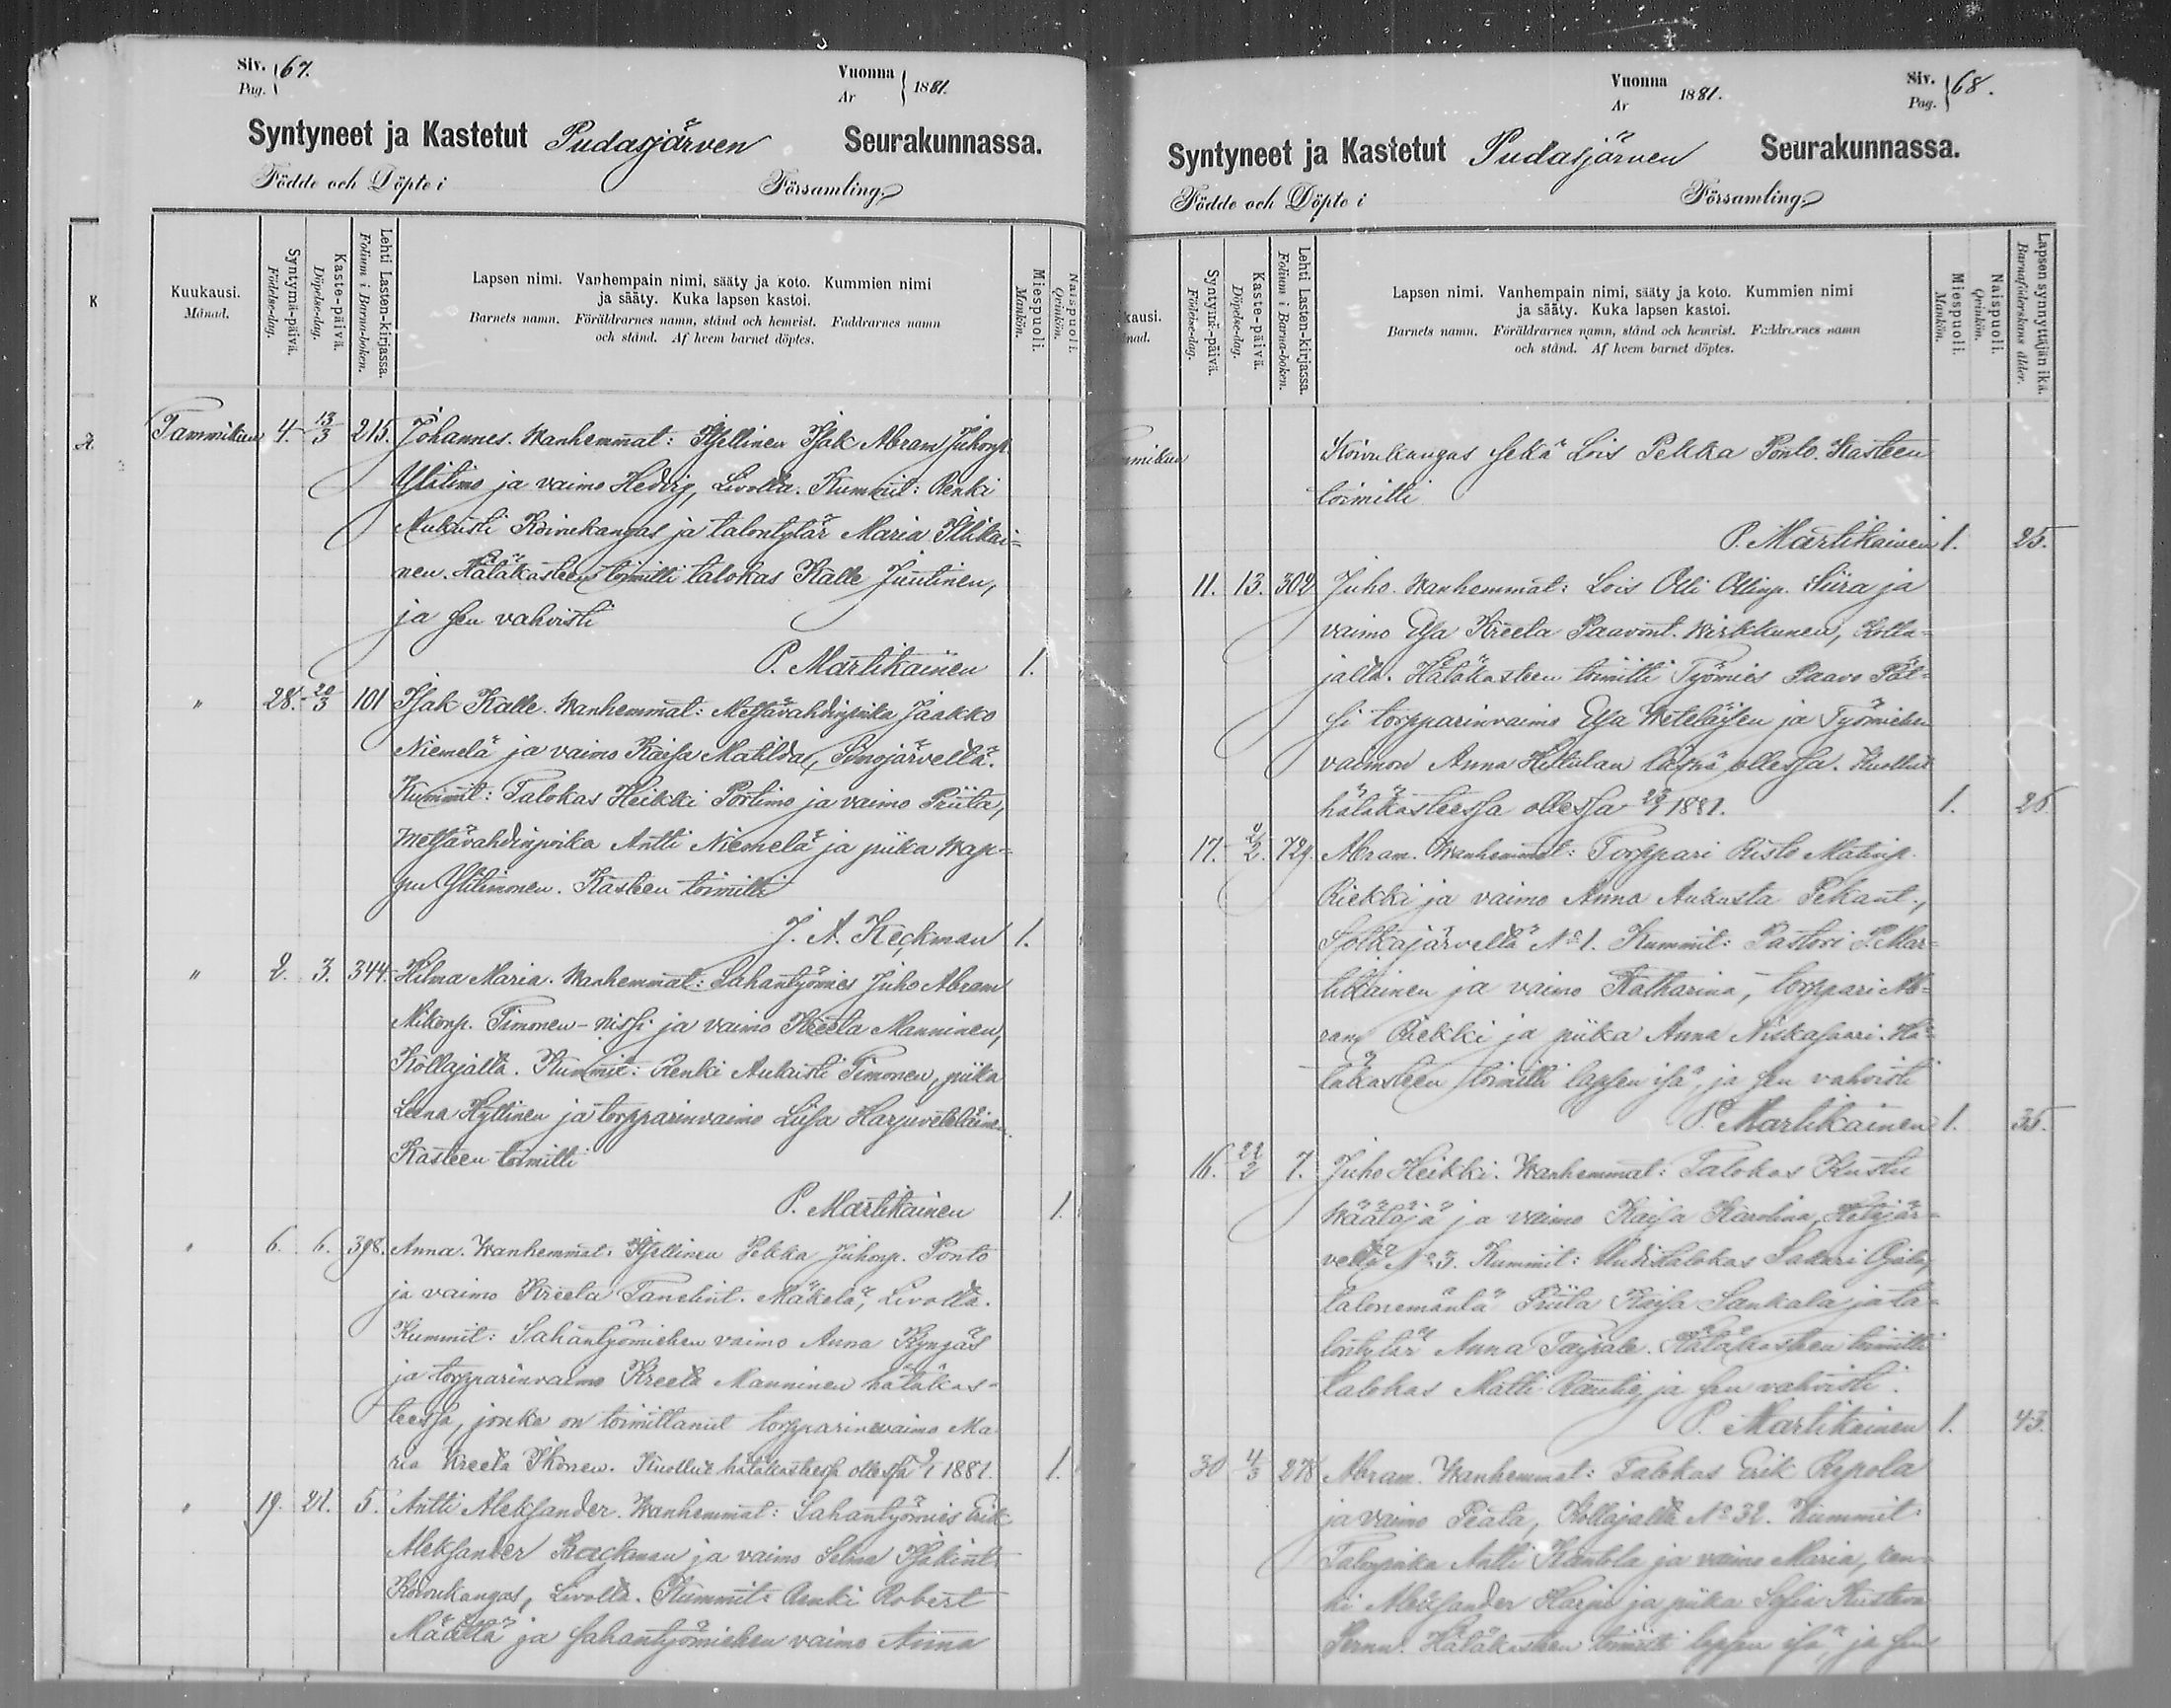 Siv. 67.
Pag.
Vuonna 1881.
Ar
Syntyneet ja Kastetut Pudasjärven Seurakunnassa.
Födde och Döpte i Församling.
K
Kuukausi.
Månad.
Syntymä-päivä.
Födelse-dag.
Kaste-päivä.
Döpelse-dag.
Lehti Lasten-kirjassa.
Folium i Barna-boken.
Lapsen nimi. Vanhempain nimi, sääty ja koto. Kummien nimi
ja sääty. Kuka lapsen kastoi.
Barnets namn. Föräldrarnes namn, stånd och hemvist. Faddrarnes namn
och stånd. Af hvem barnet döptes.
Miespuoli.
Mankön.
Naispuoli.
Qvinkön.
Tammikuu 4. 13/3 215. Johannes. Wanhemmat: Itsellinen Isak Abram Juhonp.
Ylitimo ja vaimo Hedvig, Livolta. Kummit: Renki
Aukusti Koivukangas ja talontytär Maria Illikai=
nen. Hätäkasteen toimitti talokas Kalle Juutinen,
ja sen vahvisti
P. Martikainen 1.
" 28. 20/3 101 Isak Kalle. Wanhemmat: Metsävahdinpoika Jaakko
Niemelä ja vaimo Kaisa Matilda, Sonojärveltä.
Kummit: Talokas Heikki Portimo ja vaimo Priita,
metsävahdinpoika Antti Niemelä ja piika Wap=
pu Ylitimonen. Kasteen toimitti
J. A. Keckman 1.
" 2. 3. 344. Hilma Maria. Wanhemmat: Sahantyömies Juho Abram
Mikonp. Timonen-Nissi ja vaimo Kreeta Manninen,
Kollajalta. Kummit: Renki Aukusti Timonen, piika
Leena Hyttinen ja torpparinvaimo Liisa Harjuveteläinen.
Kasteen toimitti
P. Martikainen 1.
" 6. 6. 398. Anna. Wanhemmat: Itsellinen Pekka Juhonp. Ponto
ja vaimo Kreeta Tanelint. Mäkelä, Livolta.
Kummit: Sahantyömiehen vaimo Anna Kyngäs
ja torpparinvaimo Kreeta Manninen hätäkas-
teessa, jonka on toimittanut torpparinvaimo Ma
ria Kreeta Ikonen. Kuollut hätäkasteessa ollessa 9/1 1881. 1.
" 19. 21. 5. Antti Aleksander. Wanhemmat: Sahantyömies Erik
Aleksander Brackman ja vaimo Selma Isakint.
Koivukangas, Livolta. Kummit: Renki Robert
Määttä ja sahantyömiehen vaimo Anna
Vuonna 1881.
Ar
Siv. 68.
Pag.
Syntyneet ja Kastetut Pudasjärven Seurakunnassa.
Födde och Döpte i Församling.
kausi.
nad.
Syntymä-päivä.
Födelse-dag.
Kaste-päivä.
Döpelse-dag.
Lehti Lasten-kirjassa.
Folium i Barna-boken.
Lapsen nimi. Vanhempain nimi, sääty ja koto. Kummien nimi
ja sääty. Kuka lapsen kastoi.
Barnets namn. Föräldrarnes namn, stånd och hemvist. Faddrarnes namn
och stånd. Af hvem barnet döptes.
Miespuoli.
Mankön.
Naispuoli.
Qvinkön.
Lapsen synnyttäjän ikä.
Barnaföderskans ålder.
mmikuu Koivukangas sekä Lois Pekka Ponto. Kasteen
toimitti
P. Martikainen 1. 25.
11. 13. 302 Juho. Wanhemmat: Lois Olli Ollinp. Siira ja
vaimo Elsa Kreeta Paavont. Wirkkunen, Kolla=
jalta. Hätäkasteen toimitti Työmies Paavo Päl=
si torpparinvaimo Elsa Weteläisen ja Työmiehen
vaimon Anna Hiltulan läsnä ollessa. Kuollut
hätäkasteessa ollessa 1881. 1. 26
17. 2/2. 729. Abram. Wanhemmat: Torppari Risto Matinp.
Riekki ja vaimo Anna Aukusta Pekant.,
Sotkajärveltä No 1. Kummit: Pastori P. Mar=
tikainen ja vaimo Katharina, torppari Ab=
ram Riekki ja piika Anna Niskasaari. Hä=
täkasteen toimitti lapsen isä, ja sen vahvisti
P. Martikainen 1. 35.
16. 22/2 7. Juho Heikki. Wanhemmat: Talokas Kustu
Määtäjä ja vaimo Kaisa Karolina, Hetejär=
veltä No 3. Kummit: Uudistalokas Sakari Ojala,
talonemäntä Priita Kaisa Sankala ja ta=
lontytär Anna Taipale. Hätäkasteen toimitti
talokas Matti Rautio, ja sen vahvisti.
P. Martikainen 1. 43.
30 4/3 278 Abram. Wanhemmat: Talokas Erik Repola
ja vaimo Peata, Kollajalta No 32. Kummit:
Talonpoika Antti Kantola ja vaimo Maria, ren=
ki Aleksander Harju ja piika Sofia Kustava
Pernu. Hätäkasteen toimitti lapsen isä, ja sen